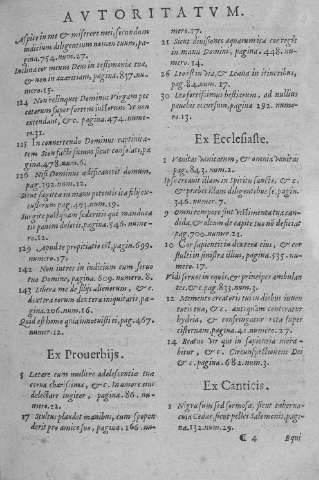 AVTORITATVM.
Aspice in me & miserere mei, secundum
iudicium diligentium nomen tuum, pa-
gina. 754. num. 27.
Inclina cor meum Deus in testimonia tua,
& non in auaritiam, pagina. 837. nu-
mero. 15.
124 Non relinquet Dominus Virgam pec
catorum super sortem iustorum: Vt non
extendant, &c. pagina. 474. numero
. 31.
125 In conuertendo Dominus captiuita-
tem Sion facti sumus sicut consolati, pa
gina. 478. num. 6.
126 Nisi Dominus ædificauerit domum,
pag. 192. num. 12.
Sicut sagittæ in manu potentis ita filij ex-
cussorum pag. 493. num. 19.
Surgite postquam sederitis qui manduca
tis panem doloris, pagina. 546. nume-
ro. 22.
129 A te propitiatio est, pagin. 699.
numero. 17.
142 Non intres in iudicium cum seruo
tuo Domine, pagina. 609. numero. 8.
143 Libera me de filijs alienorum, & c.
dextera eorum dextera iniquitatis, pa
gina. 206. num. 16.
Quid est homo quia innotuisti ei, pag. 467.
numer. 12.
Ex Prouerbijs.
5 Lætare cum muliere adolescentiæ tuæ
cerua charissima, &c. In amore eius
delectare iugiter, pagina. 86. nu-
mero. 21.
17 Stultus plaudet manibus, cum spopon
derit pro amico suo, pagina. 166. nu-
mero. 17.
21 Sicut diuisiones aquarum ita cor regis
in manu Domini, pagina. 448. num.
14.
26 Leo est in via, & Leæna in itineribus,
pag. 84. num. 17.
30 Leo fortissimus bestiarum, ad nullius
pauebit occursum, pagina 292. numero
. 13.
Ex Ecclesiaste.
1 Vanitas Vanitatum, & omnia Vanitas
pag. 843. num. 2.
Ipse creauit illam in Spiritu sancto, & c.
& præbet illam diligentibus se, pagin.
346. numero. 7.
9 Omni tempore sint vestimenta tua can-
dida, & oleum de capite tuo nõ deficiat
pag. 770. numer. 21.
10 Cor sapientis in dextera eius, & cor
stulti in sinistra illius, pagina. 535. nu-
mero. 3.
Vidi seruos in equis, & principes ambulan
tes, &c. pag. 833. num. 3.
12 Memento creatoris tui in diebus iuuen
tutis tuæ, & c. antequam conteratur
hydria, & confringatur rota super
cisternam, pagina. 41. numero. 27.
14 Beatus Vir qui in sapientia mora-
bitur, & c. Circunspectionem Dei
&c. pagina. 682. num. 3.
Ex Canticis.
1 Nigra sum sed formosa, sicut taberna-
cula Cedar, sicut pelles Salomonis, pagi-
na. 132. num. 29.
¶ 4
Equi